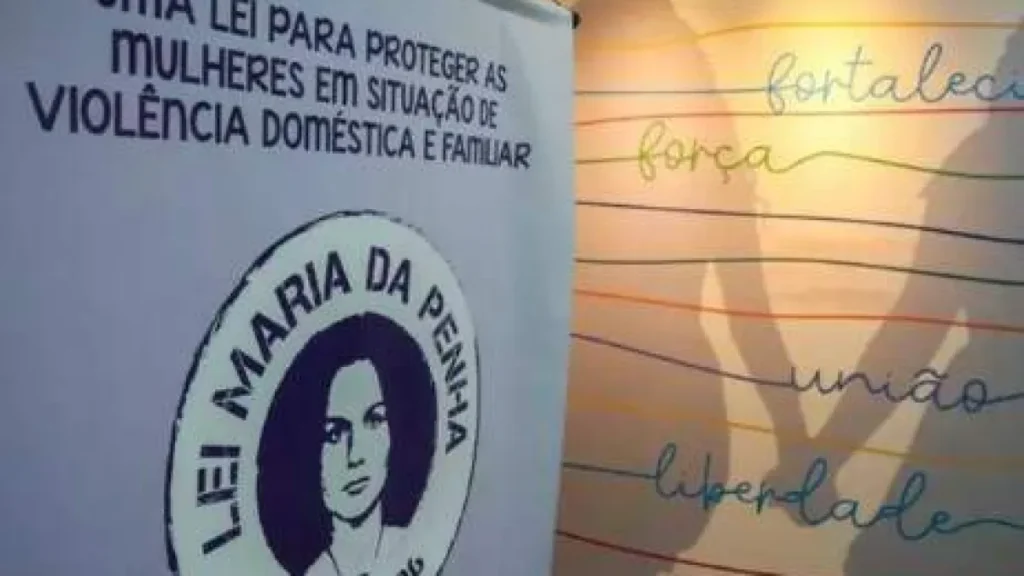 LEI PARA PROTEGER AS
MULHERES EM SITUAÇÃO DE
VIOLÊNCIA DOMÉSTICA E FAMILIAR
LEI MARIA DA PENHA
fortaleci
força
união
liberdade